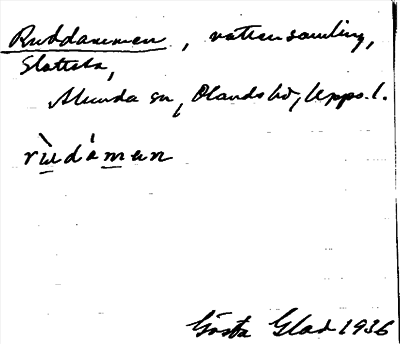 Ruddammen, vattensamling,
Slottsta,
Alunda sn, Olands hd, Upps. l.
rùdámen
Gösta Glad 1936